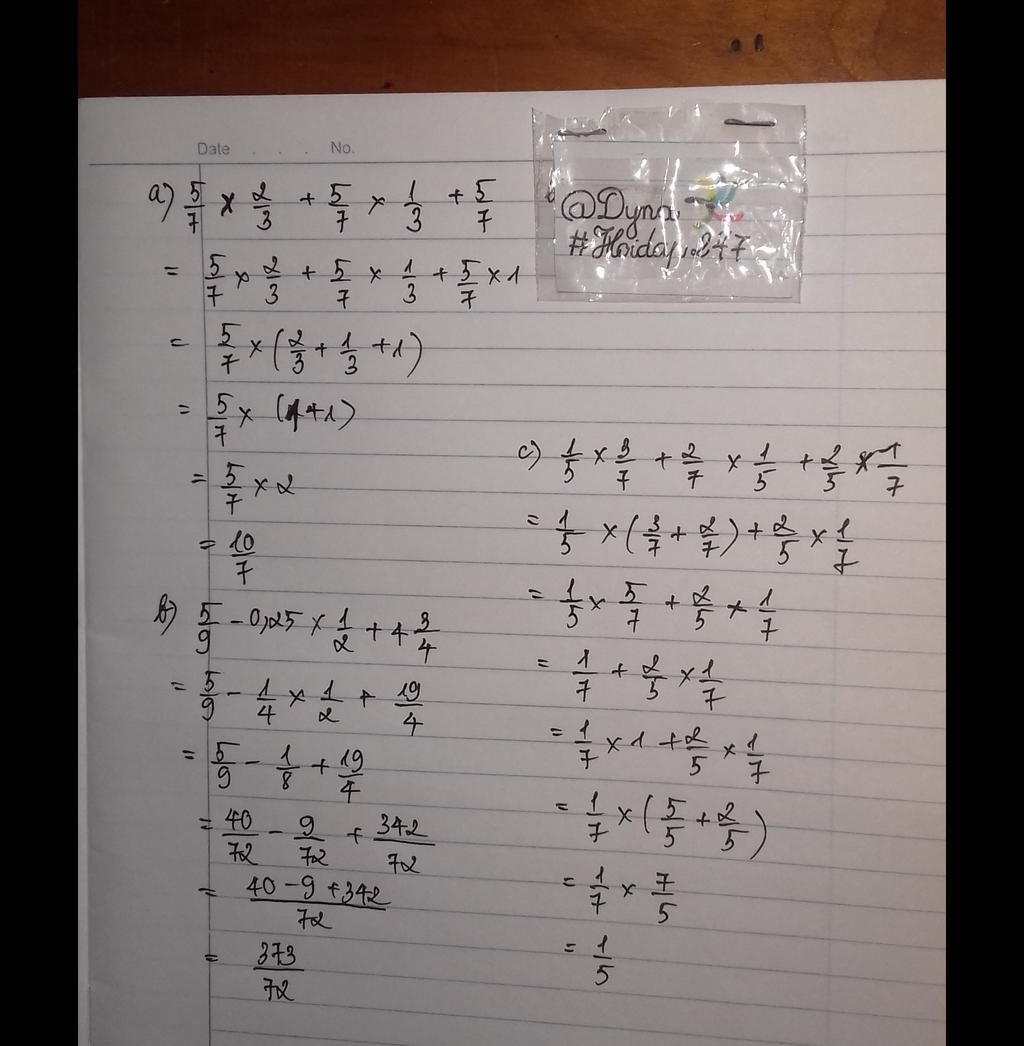 Date . . . No.
@Dyna
a) 5/7 × 2/3 + 5/7 × 1/3 + 5/7
= 5/7 × 2/3 + 5/7 × 1/3 + 5/7 × 1
= 5/7 × (2/3 + 1/3 + 1)
= 5/7 × (1+1)
= 5/7 × 2
= 10/7
b) 5/9 - 0,25 × 1/2 + 4 3/4
= 5/9 - 1/4 × 1/2 + 19/4
= 5/9 - 1/8 + 19/4
= 40/72 - 9/72 + 342/72
= 40 - 9 + 342/72
= 373/72
c) 1/5 × 3/7 + 2/7 × 1/5 + 2/5 × 1/7
= 1/5 × (3/7 + 2/7) + 2/5 × 1/7
= 1/5 × 5/7 + 2/5 × 1/7
= 1/7 + 2/5 × 1/7
= 1/7 × 1 + 2/5 × 1/7
= 1/7 × (5/5 + 2/5)
= 1/7 × 7/5
= 1/5